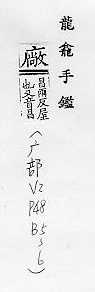 龍龕手鑑
廠
昌兩反屋
也又音昌
(广部 V2 P48 B5